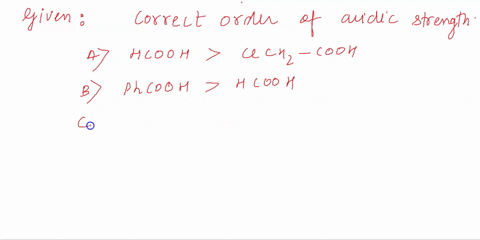 Given: Correct order of acidic strength.
A> HCOOH > ClCH2 - COOH
B> PhCOOH > HCOOH
C